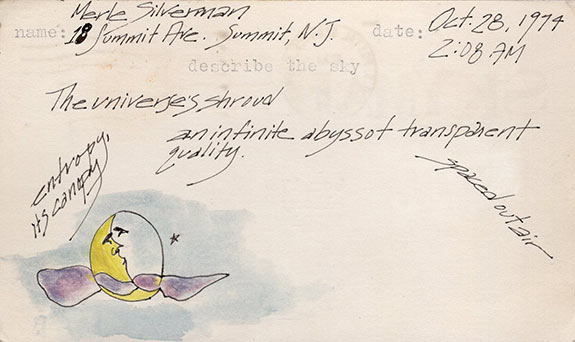 Merle Silverman
name: 18 Summit Ave. Summit, N.J.
date: Oct. 28, 1974
2:08 AM
describe the sky
The universe's shroud
an infinite abyss of transparent
quality.
entropy,
its canopy
spaced out air